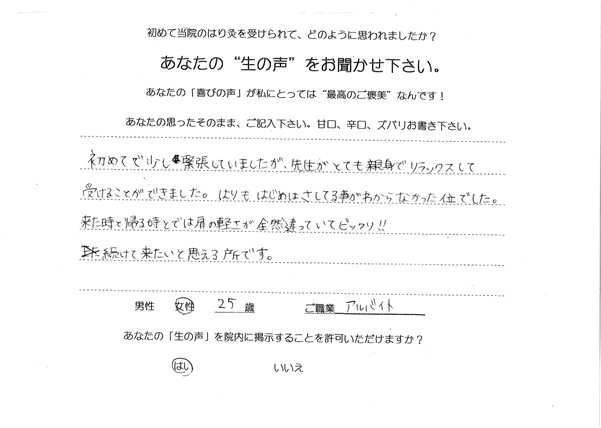 初めて当院のはり灸を受けられて、どのように思われましたか？
あなたの“生の声”をお聞かせ下さい。
あなたの「喜びの声」が私にとっては“最高のご褒美”なんです！
あなたの思ったそのまま、ご記入下さい。甘口、辛口、ズバリお書き下さい。
初めてで少し緊張していましたが、先生がとても親身でリラックスして
受けることができました。はりもはじめはさしてる事がわからなかった位でした。
来た時と帰る時とでは肩の軽さが全然違っていてビックリ!!
また続けて来たいと思える所です。
男性 女性 25歳 ご職業 アルバイト
あなたの「生の声」を院内に掲示することを許可いただけますか？
はい いいえ